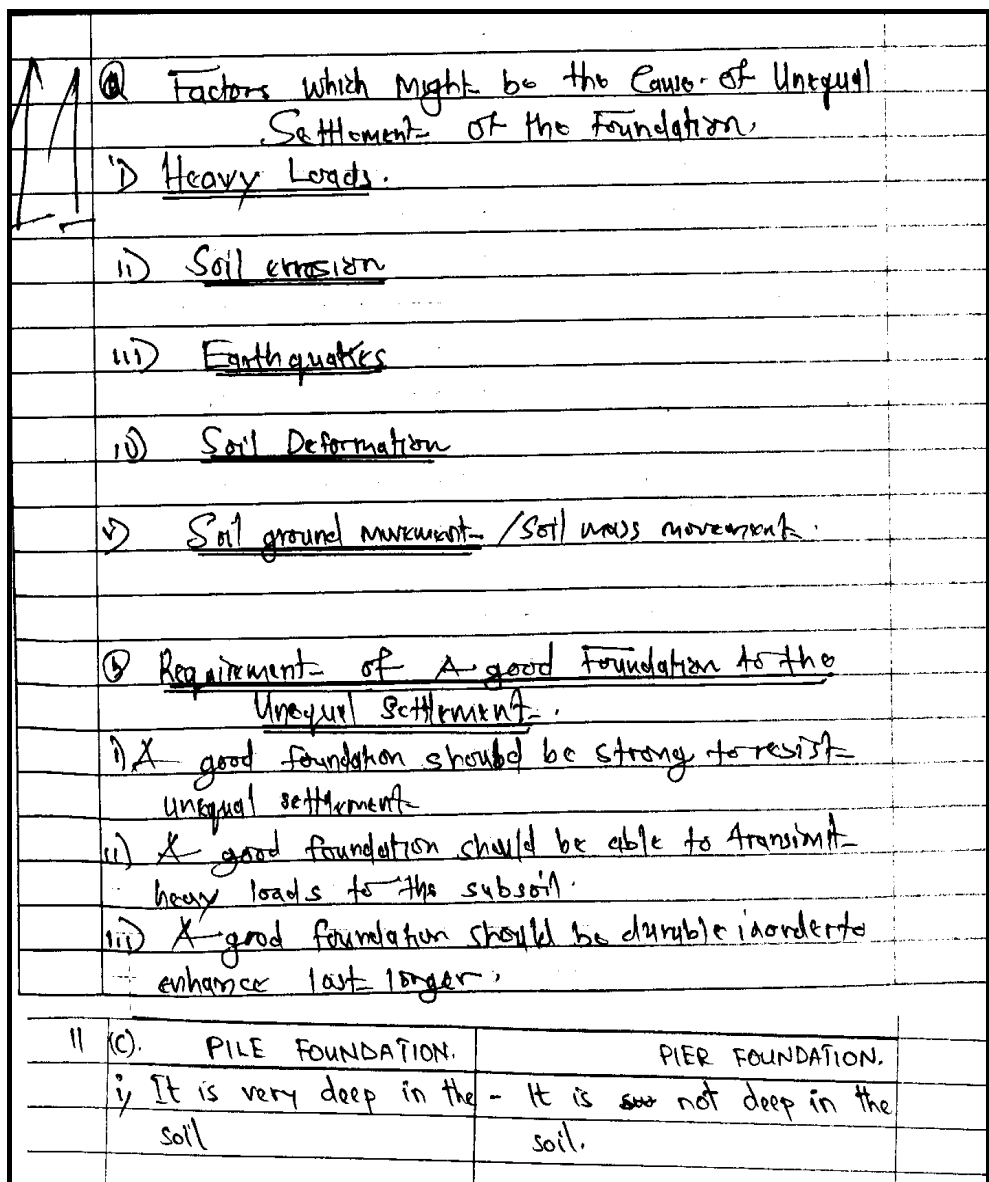 11 (a) Factors which Might be the Cause of Unequal
Settlement of the Foundation.
i) Heavy Loads.
ii) Soil errosion
iii) Earthquakes
iv) Soil Deformation
v) Soil ground movement / Soil mass movement.
(b) Requirement of A good Foundation to the
Unequal Settlement.
i) A good foundation should be strong to resist
unequal settlement
ii) A good foundation should be able to transimit
heavy loads to the subsoil.
iii) A good foundation should be durable inorder to
enhance last longer.
11 (C). PILE FOUNDATION. PIER FOUNDATION.
i, It is very deep in the - It is not deep in the
soil soil.